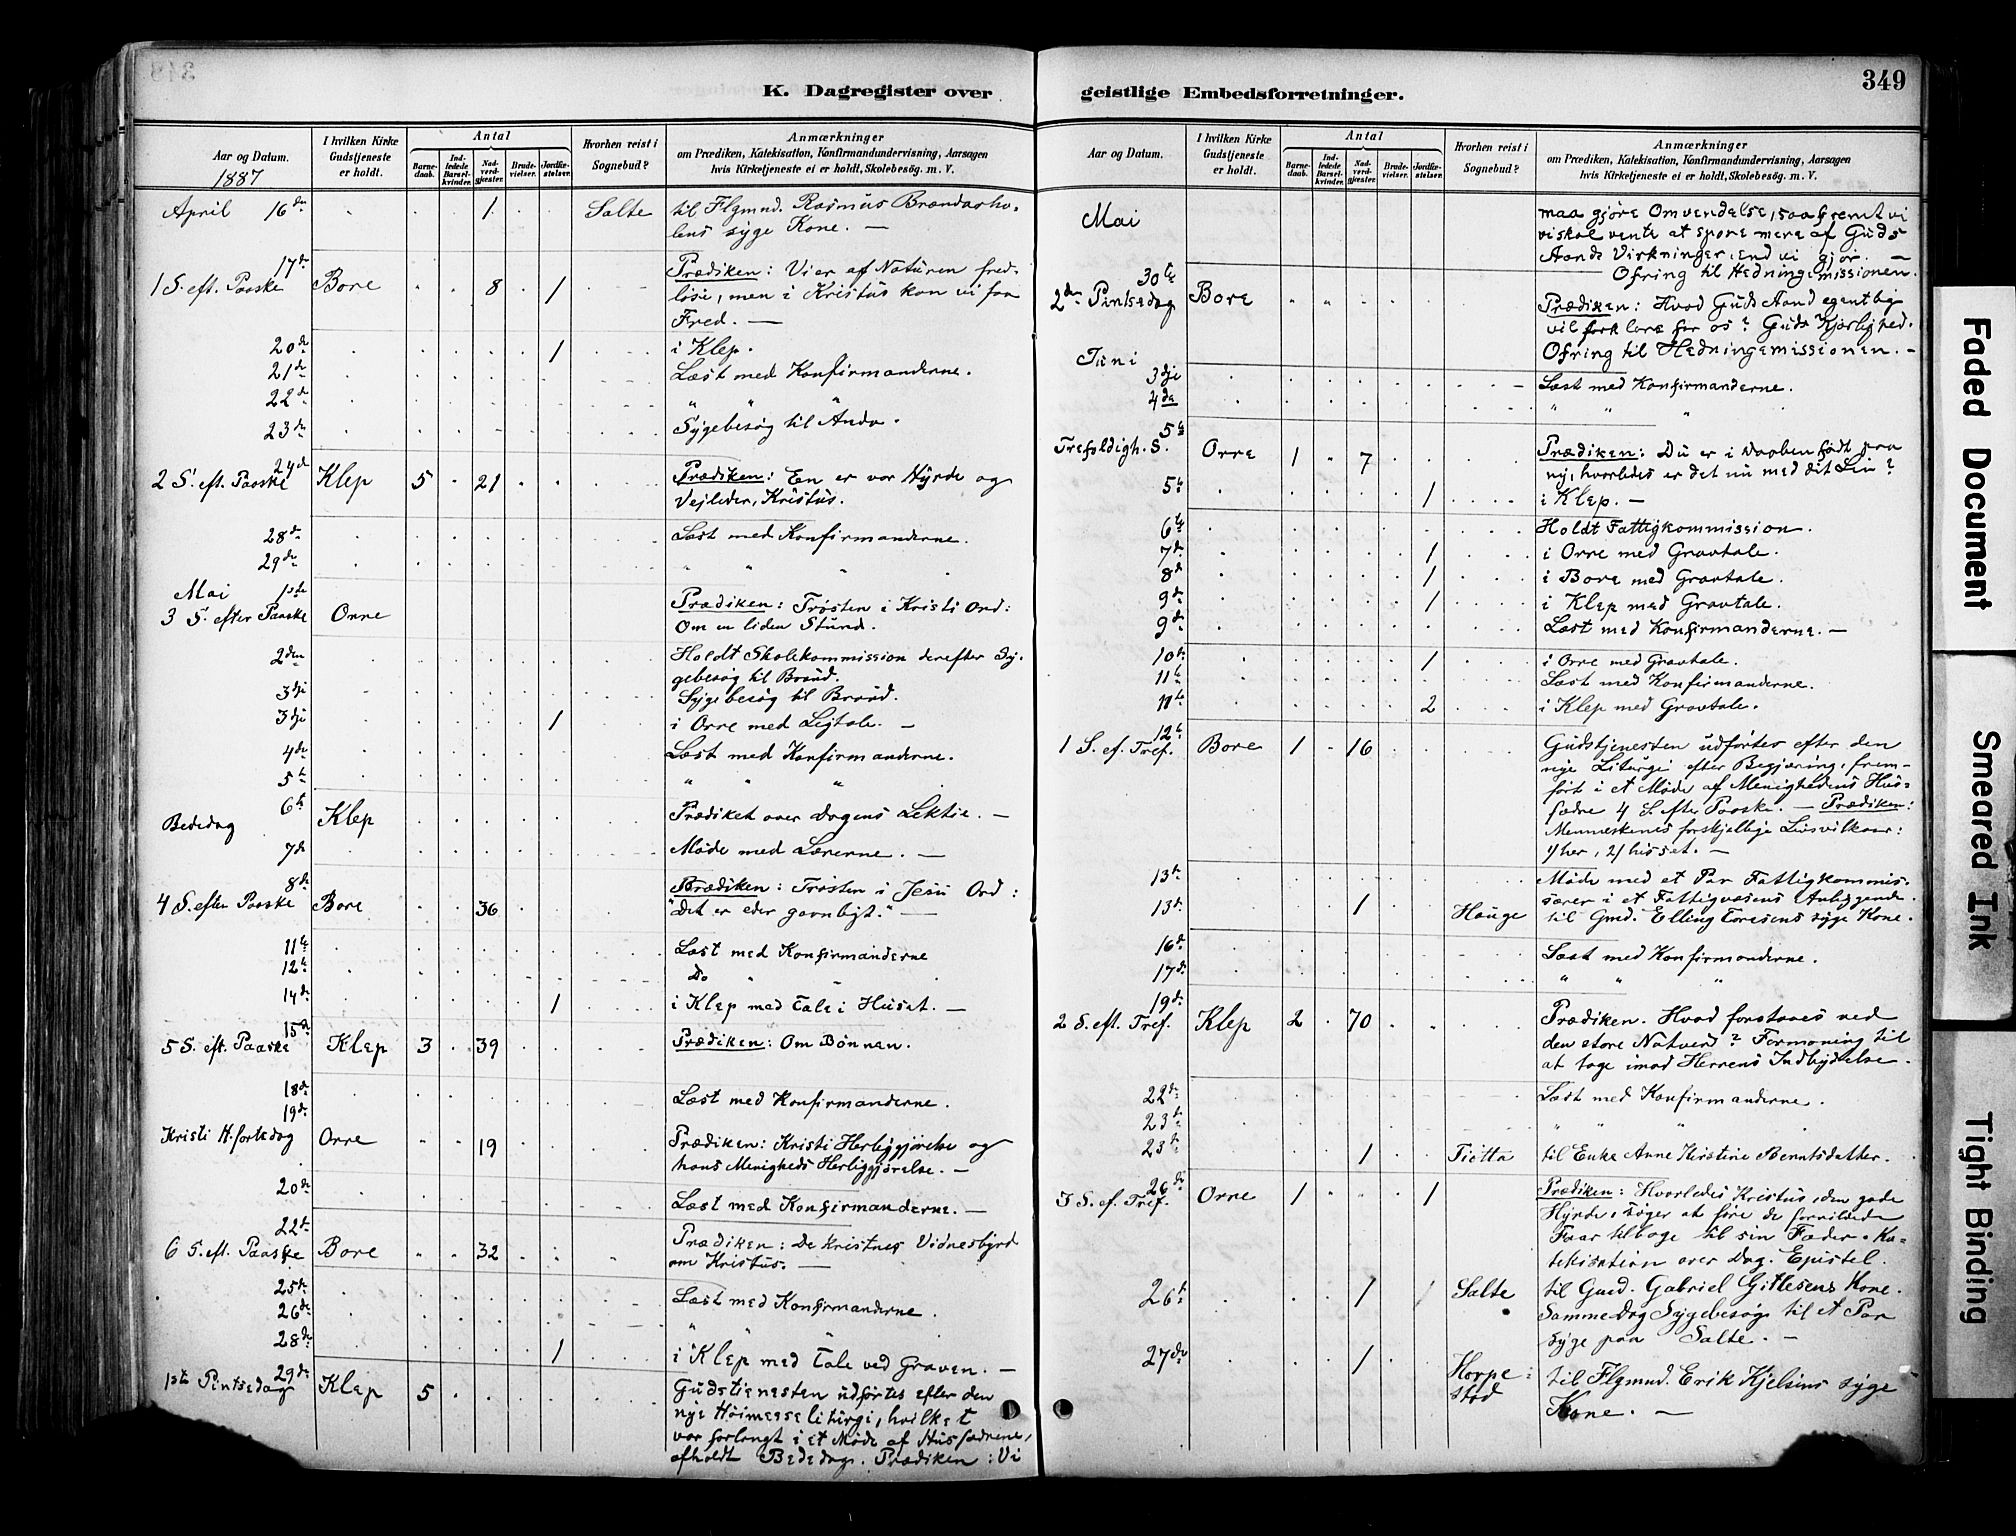 K. Dagregister over
Aar og Datum.
I hvilken Kirke Gudstjeneste er holdt.
Antal
Barnedaab.
Indledede Barselkvinder.
Nadverdgjæster.
Brudevielser.
Jordfæstelser.
Hvorhen reist i Sognebud?
Anmærkninger
om Prædiken, Katekisation, Konfirmandundervisning, Aarsagen
hvis Kirketjeneste ei er holdt, Skolebesøg. m. V.
1887
April 16de 1 Salte til Flgmnd. Rasmus Brændasho-
lens syge Kone. —
17de
1 S. eft. Paaske Bore 8 1 Prædiken: Vi er af Naturen fred-
løse, men i Kristus kan vi faa
Fred. —
20de 1 i Klep.
21de Læst med Konfirmanderne.
22de " " "
23de Sygebesøg til Anda.
24de
2 S. eft. Paaske Klep 5 21 Prædiken: En er vor Hyrde og
Vejleder, Kristus.
28de Læst med Konfirmanderne.
29de " " "
Mai 1ste
3 S. efter Paaske Orre Prædiken: Trøsten i Kristi Ord:
Om en liden Stund.
2den Holdt Skolekommission derefter Sy-
gebesøg til Braud.
3dji Sygebesøg til Braud.
3dji 1 i Orre med Ligtale. —
4de Læst med Konfirmanderne.
5te " " "
6te
Bededag Klep Prædiket over Dagens Lektie. —
7de Møde med Lærerne. —
8de
4 S. efter Paaske Bore 36 Prædiken: Trøsten i Jesu Ord:
"Det er eder gavnligt." —
11te Læst med Konfirmanderne
12te Do " "
14de 1 i Klep med Tale i Huset. —
15de
5 S. eft. Paaske Klep 3 39 Prædiken: Om Bønnen.
18de Læst med Konfirmanderne.
19de
Kristi H.fartsdag Orre 19 Prædiken: Kristi Herliggjørelse og
hans Menigheds Herliggjørelse. —
20de Læst med Konfirmanderne. —
22de
6 S. eft. Paaske Bore 32 Prædiken: De Kristnes Vidnesbyrd
om Kristus. —
25de Læst med Konfirmanderne.
26de " " "
28de 1 i Klep med Tale ved Graven. —
29de
1ste Pintsedag Klep 5 Gudstjenesten udførtes efter den
nye Høimesseliturgi, hvilket
var forlangt i et Møde af Husfædrene,
afholdt Bededag. Prædiken: Vi
geistlige Embedsforretninger.
349
Aar og Datum.
I hvilken Kirke Gudstjeneste er holdt.
Antal
Barnedaab.
Indledede Barselkvinder.
Nadverdgjæster.
Brudevielser.
Jordfæstelser.
Hvorhen reist i Sognebud?
Anmærkninger
om Prædiken, Katekisation, Konfirmandundervisning, Aarsagen
hvis Kirketjeneste ei er holdt, Skolebesøg. m. V.
Mai maa gjøre Omvendelse, saafremt vi
vi skal vente at spore mere af Guds
Aands Virkninger, end vi gjør. —
Ofring til Hedningemissionen.
30te
2den Pintsedag Bore Prædiken: Hvad Guds Aand egentlig
vil forklare for os? Guds Kjærlighed.
Ofring til Hedningemissionen. —
Juni
3dje Læst med Konfirmanderne.
4de " " "
5te
Trefoldigh. S. Orre 1 7 Prædiken: Du er i Daaben født paa
ny, hvorledes er det nu med dit Liv?
5te 1 i Klep. —
6te Holdt Fattigkommission.
7de 1 i Orre med Gravtale.
8de 1 i Bore med Gravtale.
9de 1 i Klep med Gravtale.
9de Læst med Konfirmanderne. —
10de 1 i Orre med Gravtale.
11te Læst med Konfirmanderne.
11te 2 i Klep med Gravtale.
12te
1 S. ef. Tref. Bore 1 16 Gudstjenesten udførtes efter den
nye Liturgi efter Begjæring, frem-
ført i et Møde af Menighedens Hus-
fædre 4 S. efter Paaske. — Prædiken:
Menneskenes forskjellige Livsvilkaar:
1) her, 2) hisset. —
13de Møde med et Par Fattigkommis-
særer i et Fattigvæsens Anliggende.
13de 1 Hauge til Gmd. Elling Toresens syge Kone.
16de Læst med Konfirmanderne.
17de " " "
19de
2 S. eft. Tref. Klep 2 70 Prædiken. Hvad forstaaes ved
den store Natverd? Formaning til
at tage imod Herrens Indbydelse.
22de Læst med Konfirmanderne.
23de " " "
23de 1 Tjøtta til Enke Anne Kirstine Berntsdatter.
26de
3 S. ef. Tref. Orre 1 1 Prædiken: Hvorledes Kristus, den gode
Hyrde, søger at føre de forvildede
Faar tilbage til sin Fader. Ka-
tekisation over Dag. Epistel.
26de 1 Salte til Gmd. Gabriel Gitlesens Kone.
Samme Dag Sygebesøg til et Par
syge paa Salte. —
27de 1 Horpe-
stad til Flgmnd. Erik Kjelsens syge
Kone. —
Faded Document
Smeared Ink
Tight Binding